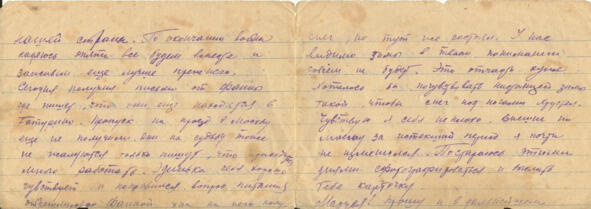 нашей страны. По окончанию войны
надеюсь жить все будем вместе и
заживем еще лучше прежнего.
Сегодня получил письмо от Фанки
где пишет, что они еще находятся в
Пропуск на проезд в Москву
еще не получили. Они на судьбу тоже
не жалуются только пишут, что приходится
много работать. Зиновка себя хорошо
чувствует и разрешился вопрос питания
снег, но тут же растаял. У нас
видимо зимы в твоем понимании
совсем не будет. Это отчасти хуже
хотелось бы почувствовать настоящую зиму
такой чтобы снег под ногами хрустел.
Чувствую я себя неплохо. Внешне по
моему за истекший период я почти
не изменился. Постараюсь этими
днями сфотографироваться и выслать
тебе карточку
прошу и в дальнейшем